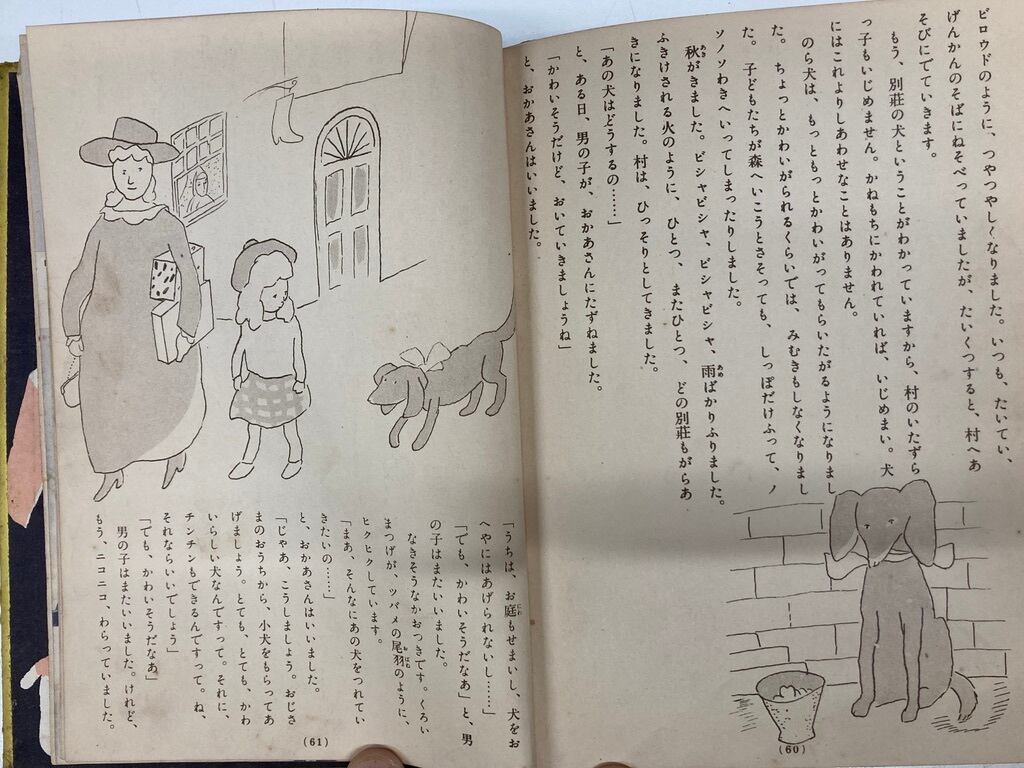 ビロウドのように、つやつやしくなりました。いつも、たいてい、
げんかんのそばにねそべっていましたが、たいくつすると、村へあ
そびにでていきます。
もう、別荘の犬ということがわかっていますから、村のいたずら
っ子もいじめません。かねもちにかわれていれば、いじめまい。犬
にはこれよりしあわせなことはありません。
のら犬は、もっともっとかわいがってもらいたがるようになりまし
た。ちょっとかわいがられるくらいでは、みむきもしなくなりまし
た。子どもたちが森へいこうとさそっても、しっぽだけふって、ノ
ソノソわきへいってしまったりしました。
秋がきました。ビシャビシャ、ビシャビシャ、雨ばかりふりました。
ふきけされる火のように、ひとつ、またひとつ、どの別荘もがらあ
きになりました。村は、ひっそりとしてきました。
「あの犬はどうするの……」
と、ある日、男の子が、おかあさんにたずねました。
「かわいそうだけど、おいていきましょうね」
と、おかあさんはいいました。
(60)
「うちは、お庭もせまいし、犬をお
へやにはあげられないし……」
「でも、かわいそうだなあ」と、男
の子はまたいいました。
なきそうなかおつきです。くろい
まつげが、ツバメの尾羽のように、
ヒクヒクしています。
「まあ、そんなにあの犬をつれてい
きたいの……」
と、おかあさんはいいました。
「じゃあ、こうしましょう。おじさ
まのおうちから、小犬をもらってあ
げましょう。とても、とても、かわ
いらしい犬なんですって。それに、
チンチンもできるんですって。ね、
それならいいでしょう」
「でも、かわいそうだなあ」
男の子はまたいいました。けれど、
もう、ニコニコ、わらっていました。
(61)